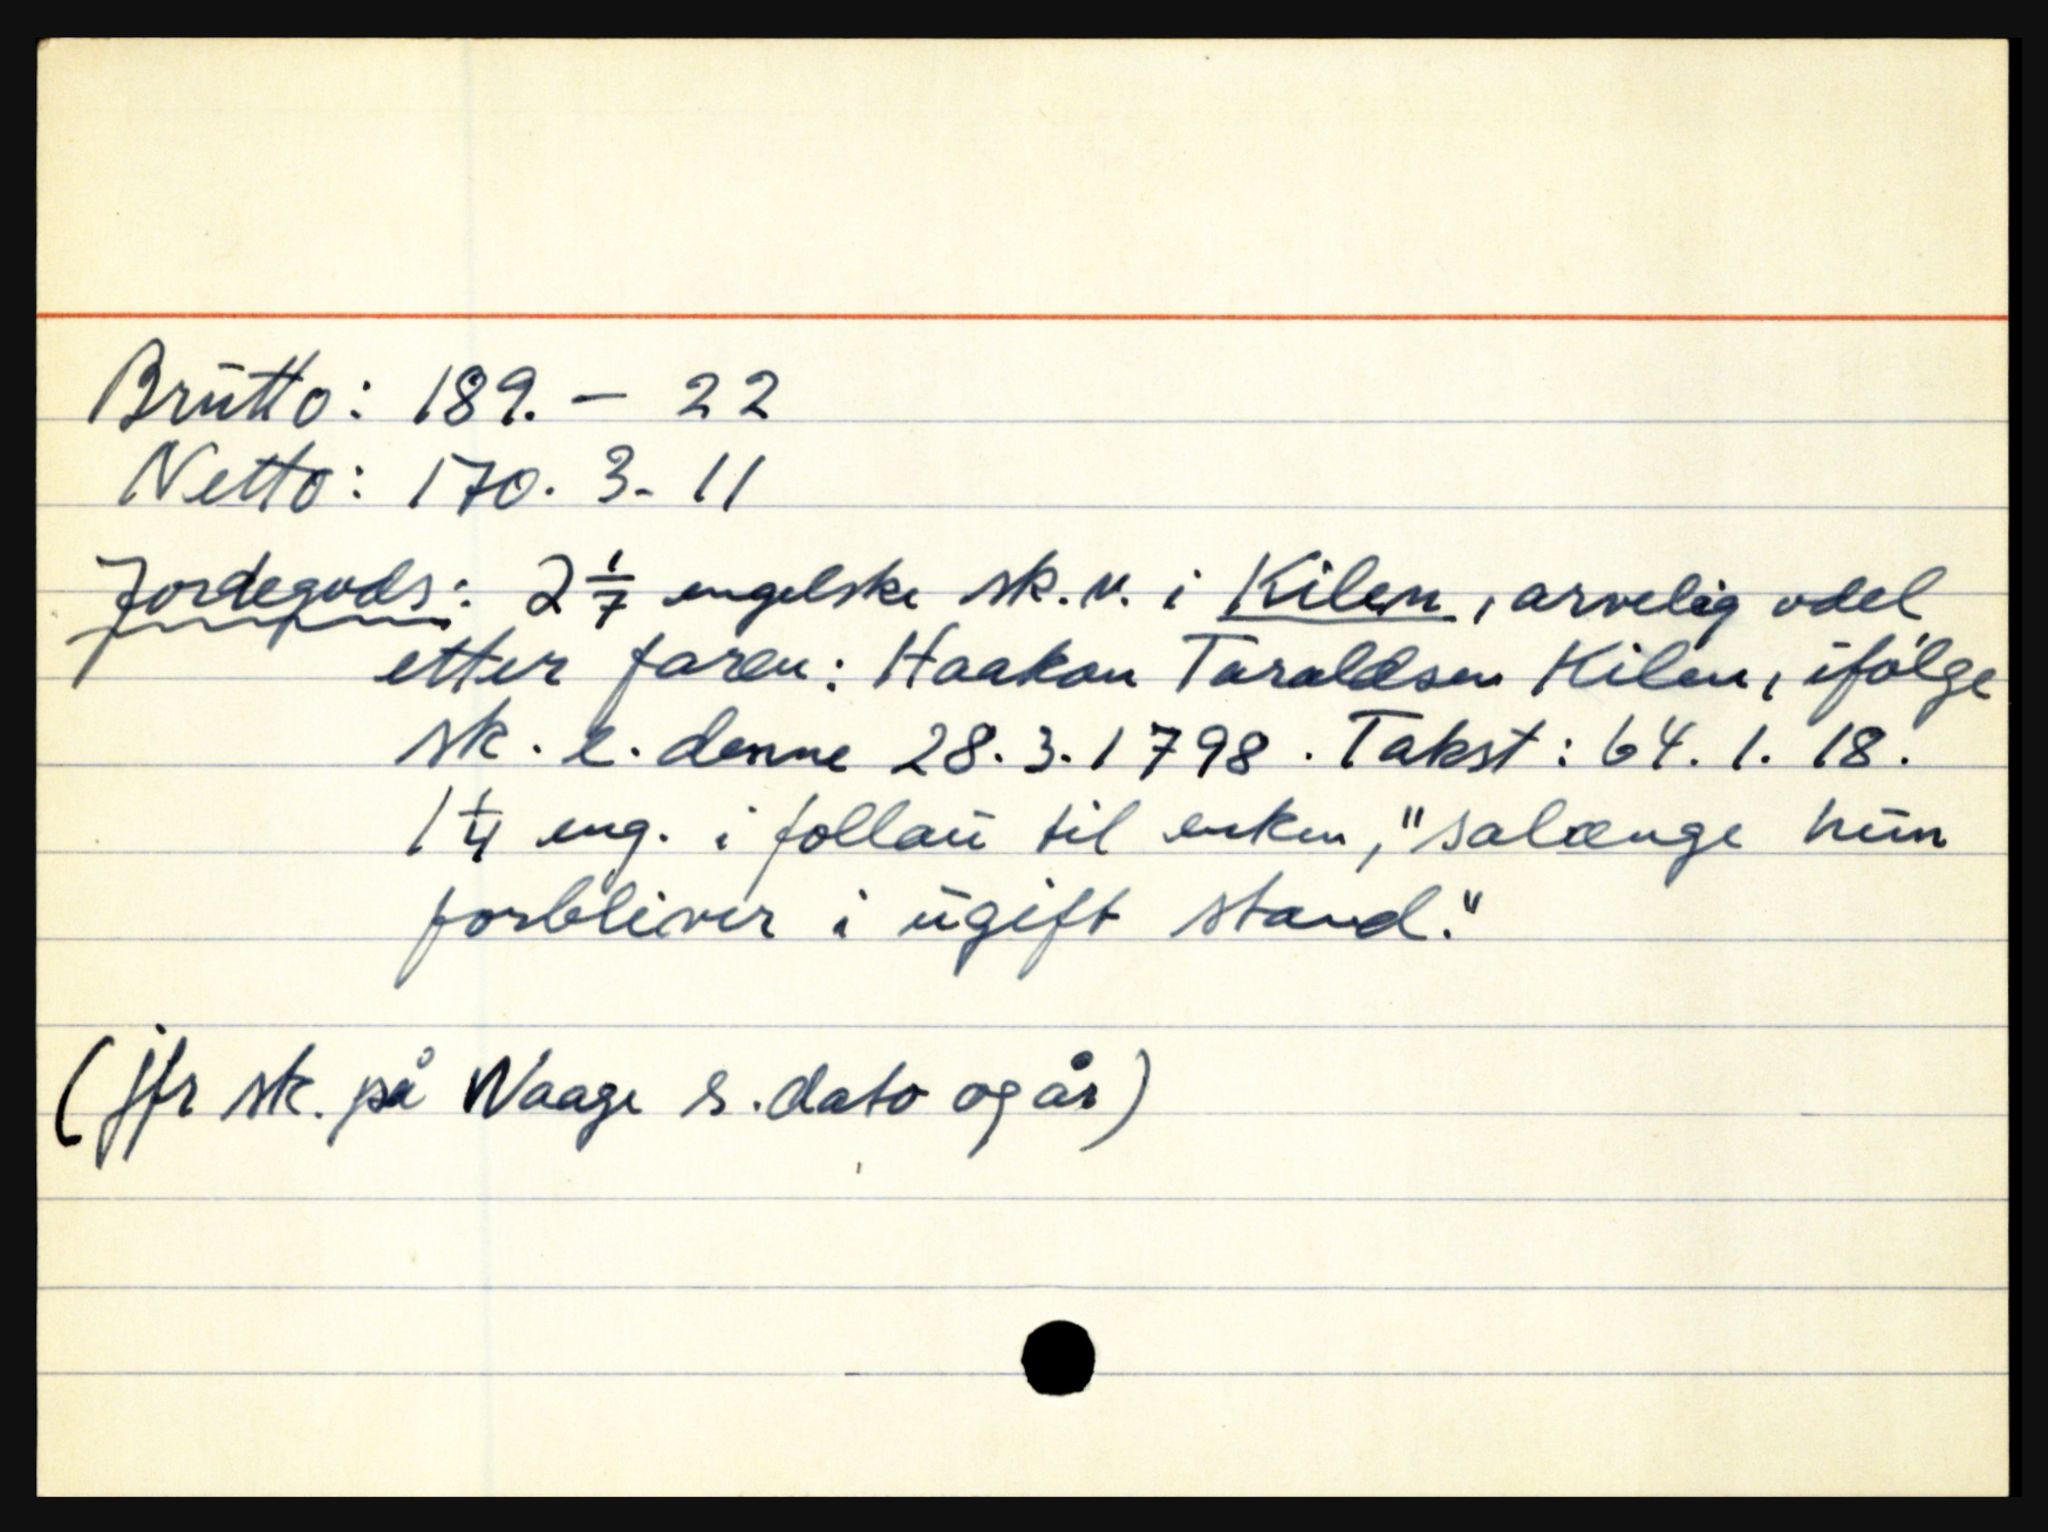 Brutto: 189. — 22
Netto: 170. 3. 11
Jordegods: 2 1/7 engelske sk.v. i Kilen, arvelig odel
etter faren: Haakon Taraldsen Kilen, ifølge
sk. e. denne 28.3.1798. Takst: 64. 1. 18.
1 1/4 eng. i follau til enken, "salænge hun
forbliver i ugift stand."
(jfr sk. på Waage s. dato og år)